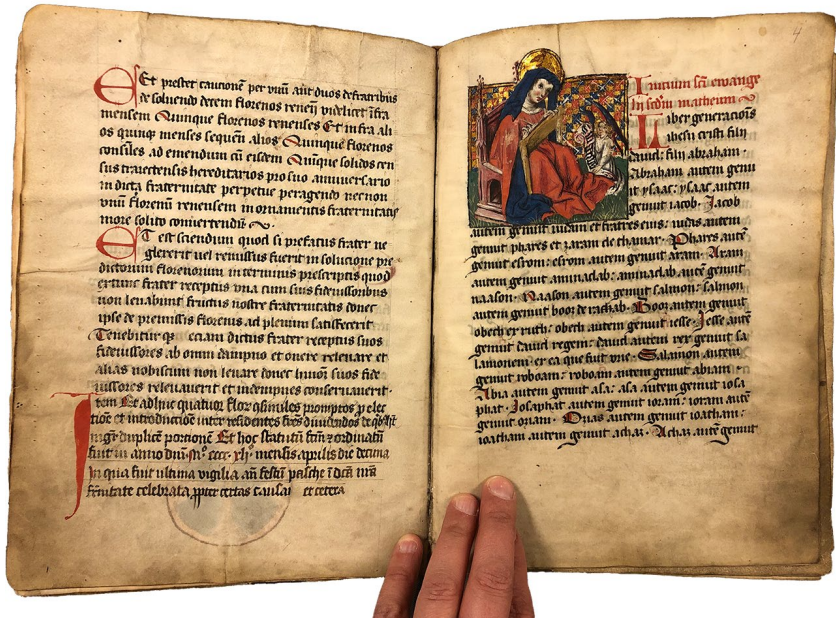 Et prestet cautionē per vnū aut duos de fratribus
de soluendo decem florenos renen̄ videlicet īfra
mensem Quinque florenos renenses Et infra ali
os quinq menses sequen̄ alios Quinque florenos
ad emendum cū eisdem Quīque solidos cen
sus traiectensis hereditarios pro suo anniuersario
in dicta fraternitate perpetue peragendo necnon
vnū florenū renensem in ornamentis fraternitatis
more solito conuertendū
ET est sciendum quod si prefatus frater ne
glexerit vel remissus fuerit in solucione pre
dictorum florenorum in terminis prescriptis quod
extunc frater receptus vna cum suis fideiussoribus
non leuabunt fructus nostre fraternitatis donec
ipse de premissis florenis ad plenum satisfecerit
Tenebitur dictus frater receptus suos
fideiussores ab omni dampno et onere releuare et
alias nobiscum non leuare donec suos fide
iussores releuauerit et indempnes conseruauerit
Item Et adhuc quatuor flor 9similes promptos p elec
tiōe et introductiōe inter residentes frēs diuidendos
duplicē portionē Et hoc statutū ordinatū
fuit in anno dnī Mº cccc xlj mensis aprilis die decima
in qua fuit vltima vigilia an̄ festū pasche ī dcā nrā
celebrata ppter certas causas et cetera
4
Inicium scī ewange
lij scdm matheum
Liber generacionis
ihesu cristi filij
dauid filij abraham
Abraham autem genu
it ysaac ysaac autem
genuit iacob Jacob
autem genuit iudam et fratres eius iudas autem
genuit phares et zaram de thamar Phares autē
genuit esrom esrom autem genuit aram Aram
autem genuit aminadab aminadab autē genuit
naason Naason autem genuit salmon salmon
autem genuit booz de rachab Booz autem genuit
obeth ex ruth obeth autem genuit iesse Jesse autē
genuit dauid regem dauid autem rex genuit sa
lamonem ex ea que fuit vrie Salamon autem
genuit roboam roboam autem genuit abiam
Abia autem genuit asa asa autem genuit iosa
phat Josaphat autem genuit ioram ioram autē
genuit oziam Ozias autem genuit ioatham
ioatham autem genuit achaz Achaz autē genuit